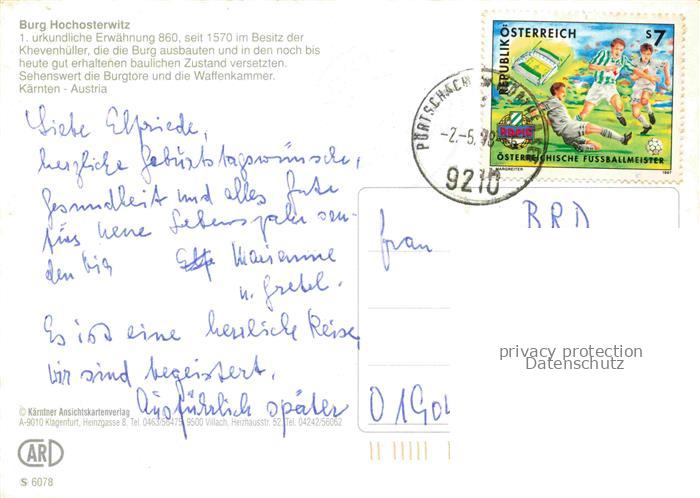 Burg Hochosterwitz
1. urkundliche Erwähnung 860, seit 1570 im Besitz der
Khevenhüller, die die Burg ausbauten und in den noch bis
heute gut erhaltenen baulichen Zustand versetzten.
Sehenswert die Burgtore und die Waffenkammer.
Kärnten - Austria
Liebe Elfriede,
herzliche Geburtstagswünsche,
Gesundheit und alles Gute
fürs neue Lebensjahr sen-
den Dir Marianne
u. Gretel.
Es ist eine herrliche Reise,
wir sind begeistert.
Ausführlich später
© Kärntner Ansichtskartenverlag
A-9010 Klagenfurt, Heinzgasse 8, Tel. 0463/56475, 9500 Villach, Herzhausstr. 52, Tel. 04242/56062
CARD
S 6078
REPUBLIK ÖSTERREICH
S 7
RAPID
ÖSTERREICHISCHE FUSSBALLMEISTER
MARGREITER
1997
PÖRTSCHACH
-2.-5.98
9210
BRD
Frau
0190
privacy protection
Datenschutz